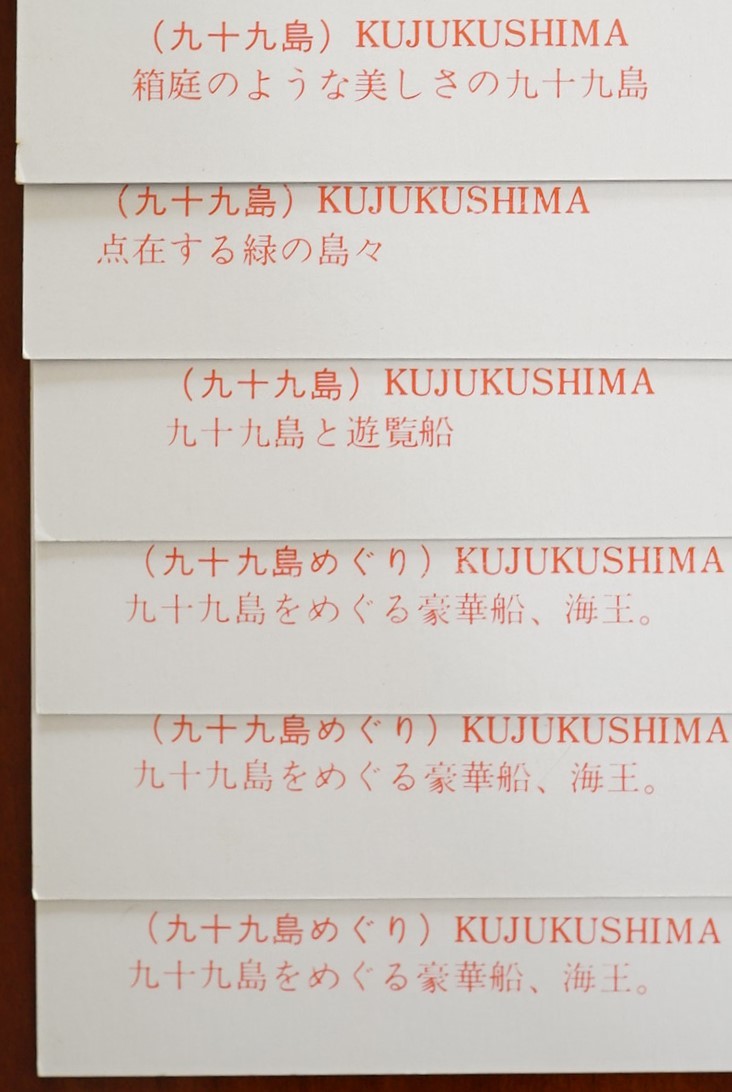 （九十九島）KUJUKUSHIMA
箱庭のような美しさの九十九島
（九十九島）KUJUKUSHIMA
点在する緑の島々
（九十九島）KUJUKUSHIMA
九十九島と遊覧船
（九十九島めぐり）KUJUKUSHIMA
九十九島をめぐる豪華船、海王。
（九十九島めぐり）KUJUKUSHIMA
九十九島をめぐる豪華船、海王。
（九十九島めぐり）KUJUKUSHIMA
九十九島をめぐる豪華船、海王。